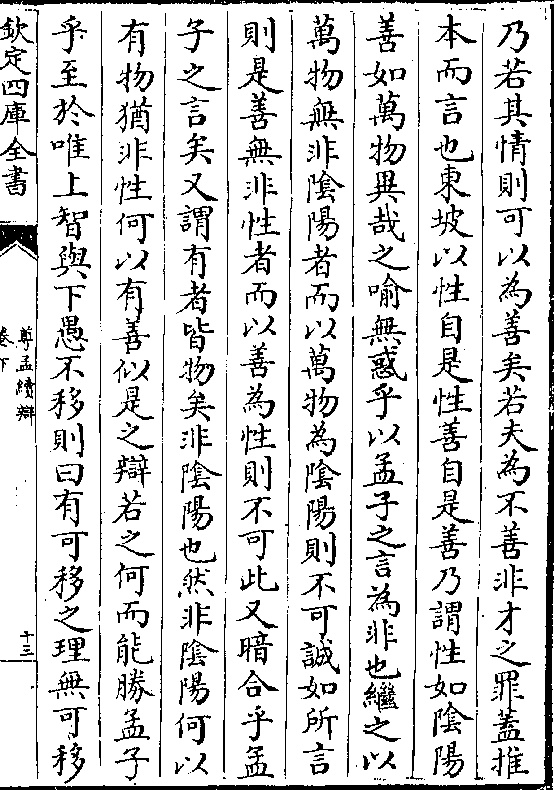 乃若其情則可以為善矣若夫為不善非才之罪蓋推
本而言也東坡以性自是性善自是善乃謂性如陰陽
善如萬物異哉之喻無惑乎以孟子之言為非也繼之以
萬物無非陰陽者而以萬物為陰陽則不可誠如所言
則是善無非性者而以善為性則不可此又暗合乎孟
子之言矣又謂有者皆物矣非陰陽也然非陰陽何以
有物猶非性何以有善似是之辯若之何而能勝孟子
乎至於唯上智與下愚不移則曰有可移之理無可移
欽定四庫全書
尊孟續辯
卷下
十三